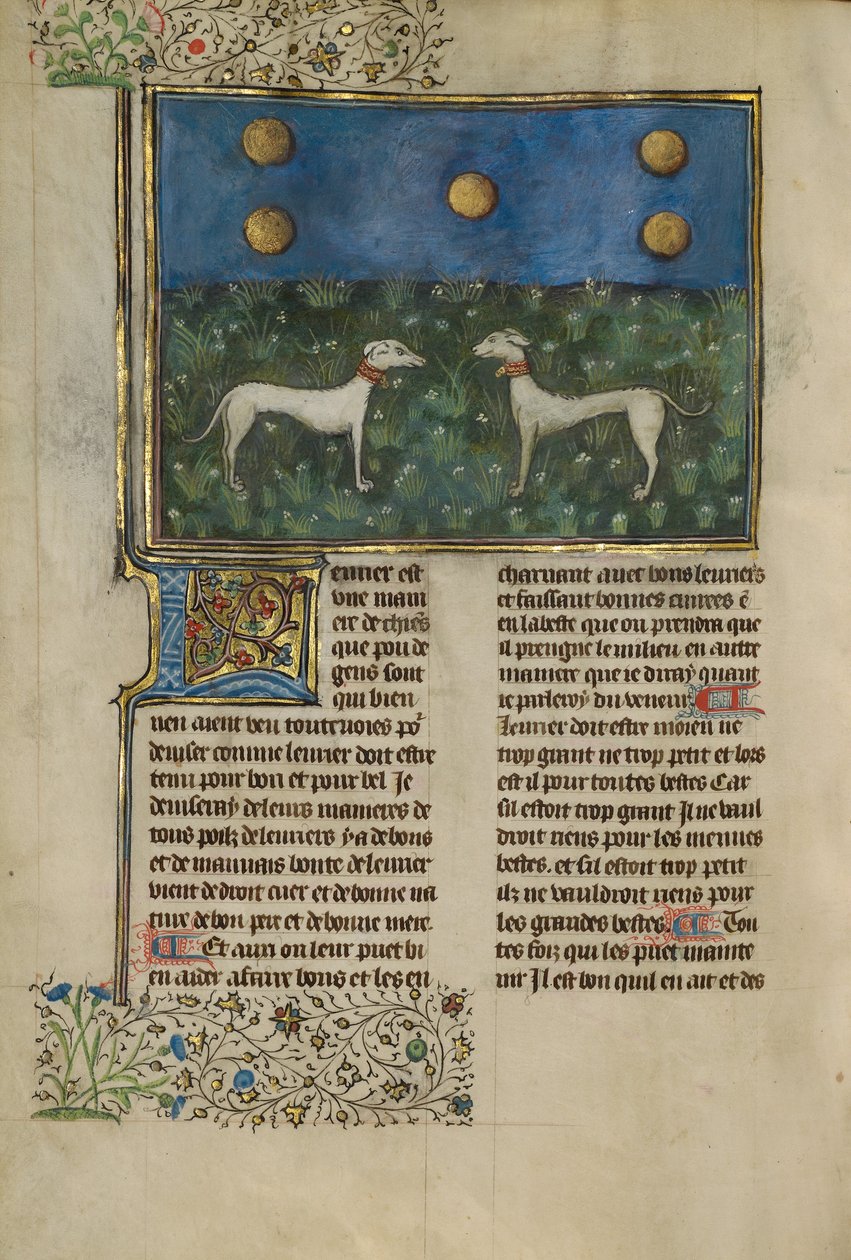 Leurier est
vne mani
ere de chiēs
que pou de
gens sont
qui bien
nen aient veu toutesuoies po᷑
deuiser comme leurier doit estre
tenu pour bon et pour bel Je
deuiseray de leurs manieres de
tous poilz de leuriers y a de bons
et de mauuais bonte de leurier
vient de droit cuer et de bonne na
ture de bon pere et de bonne mere.
Et aussi on leur puet bi
en aider a faire bons et les en
charnant auec bons leuriers
et faissant bonnes cuirees ē
en la beste que on prendra que
il prengne le milieu en autre
maniere que ie diray quant
ie parleray du veneur
leurier doit estre moien ne
trop grant ne trop petit et lors
est il pour toutes bestes Car
sil estoit trop grant Il ne vaul
droit riens pour les menues
bestes. et sil estoit trop petit
ilz ne vauldroit riens pour
les grandes bestes. Tou
tes foiz qui les puet mainte
nir Il est bon quil en ait et des